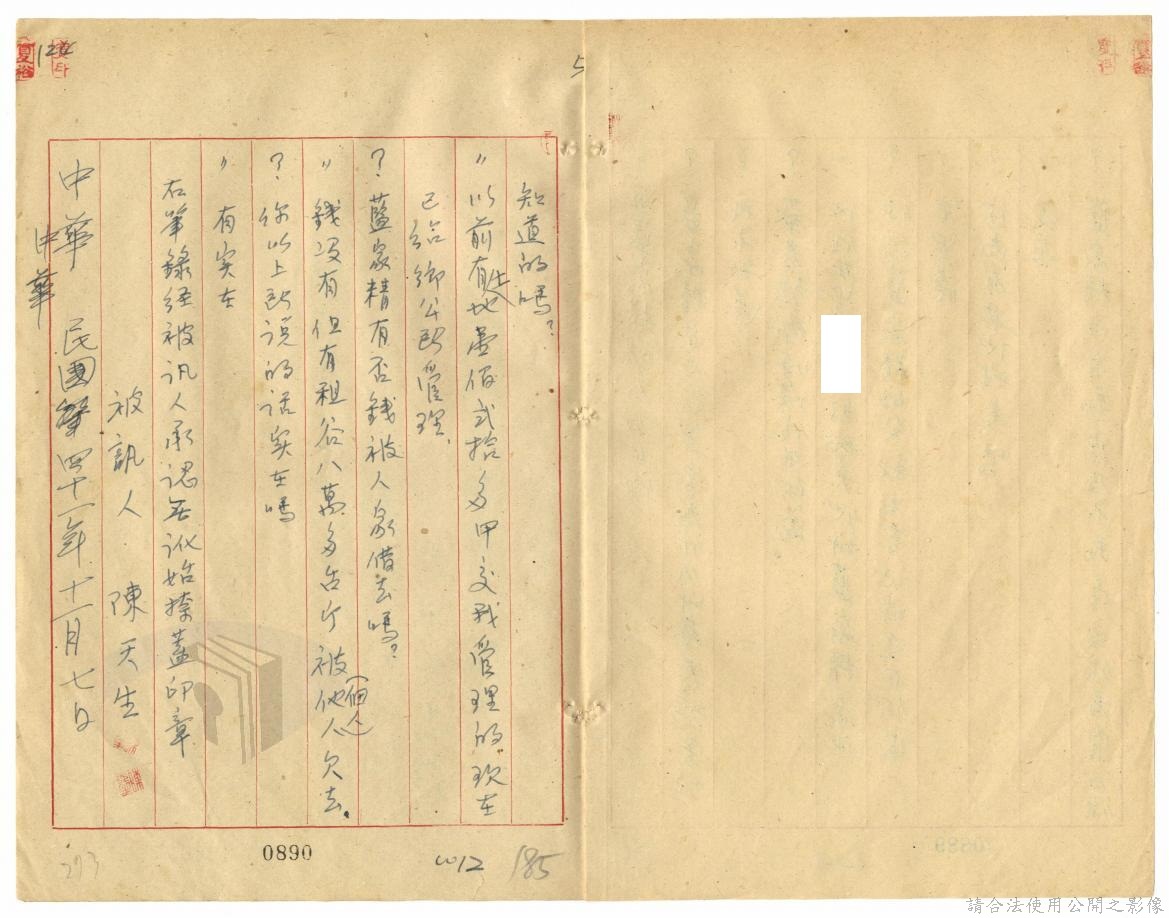 5
知道的嗎？
〃以前有土地壹佰弍拾多甲交我管理的現在
已給鄉公所管理.
？藍家精有否錢被人家借去嗎？
〃錢沒有但有租谷八萬多台斤被他人(佃人)欠去.
？你以上所說的話实在嗎
〃有实在
右筆錄经被讯人承認无讹始捺蓋印章
被訊人 陳天生
中華民國第四十一年十一月七日
中華
0890
185
273
請合法使用公開之影像